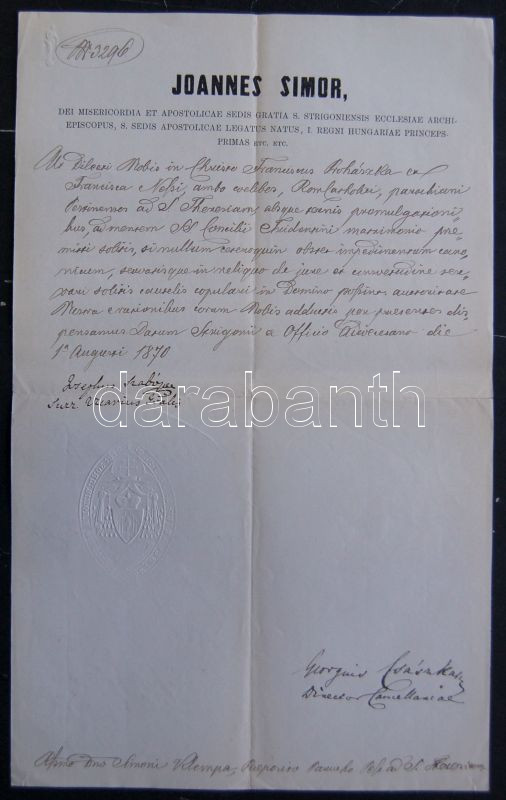 3296
JOANNES SIMOR,
DEI MISERICORDIA ET APOSTOLICAE SEDIS GRATIA S. STRIGONIENSIS ECCLESIAE ARCHI-
EPISCOPUS, S. SEDIS APOSTOLICAE LEGATUS NATUS, I. REGNI HUNGARIAE PRINCEPS-
PRIMAS ETC. ETC.
Dilecti Nobis in Christo Franciscus Prohászka et
Francisca ambo coelibes, Rom Catholici, parochiani
Pestinenses ad S Theresiam, absque trenis promulgationi„
bus, ad mentem SS Concilii Tridentini matrimonio prae„
mitti solitis, si nullum ceteroquin obstet impedimentum cano„
nicum, servatisque in reliquo de jure et consvetudine ser„
vari solitis cautelis copulari in Domino possint auctoritate
Nostra e rationibus coram Nobis adductis per praesentes dis„
pensamus Datum Strigonii e Officio Dioecesano die
1a Augusti 1870
Josephus
Vicarius
darabanth
Georgius Császka
Director Cancellariae
Dno Simoni Parocho ad S.